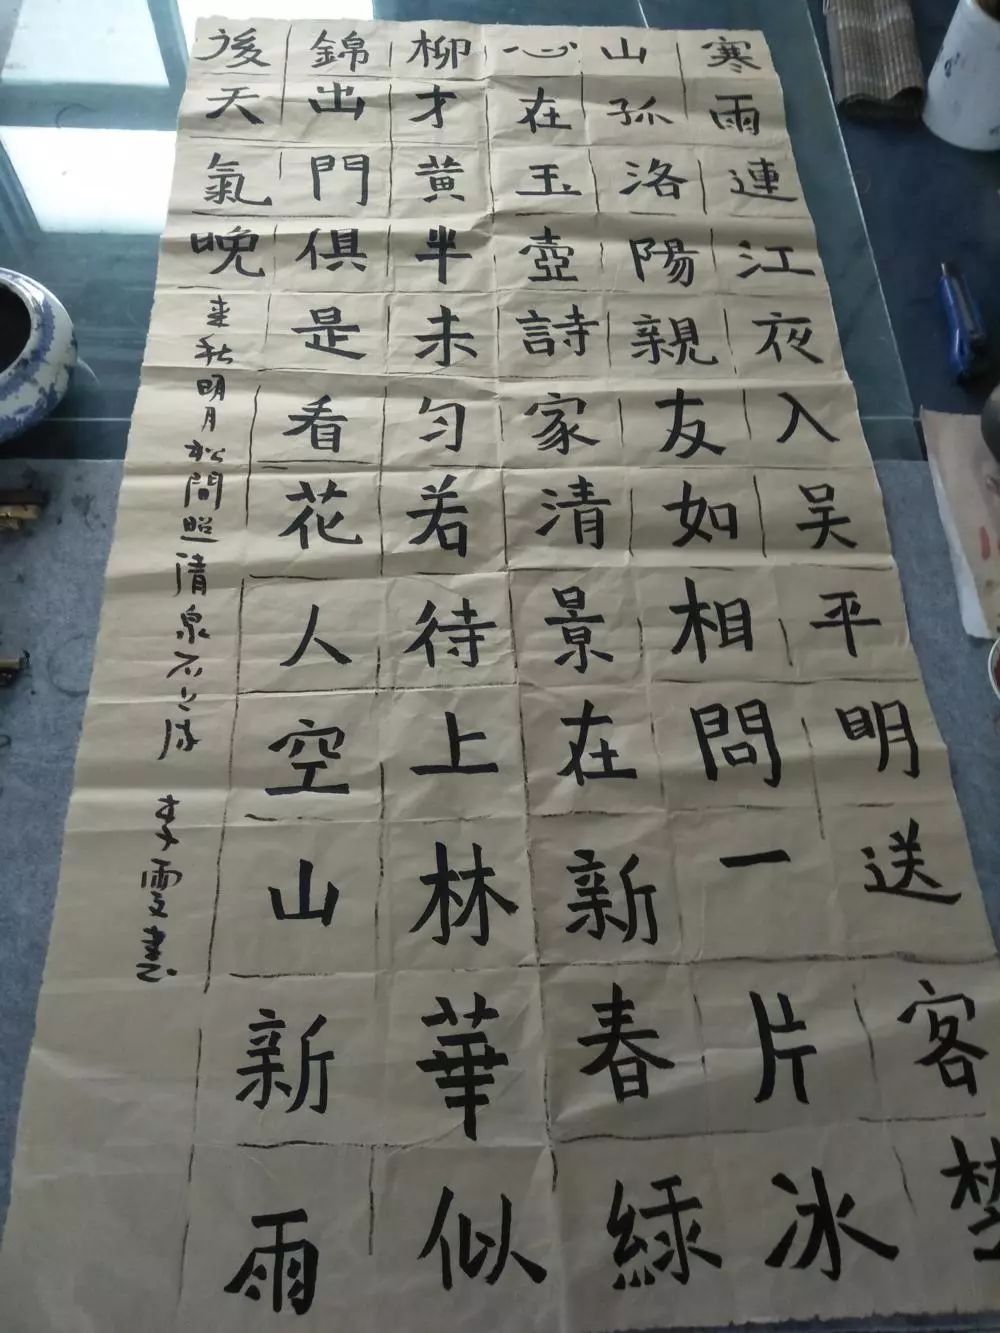 寒雨連江夜入吴平明送客楚
山孤洛陽親友如相問一片冰
心在玉壺詩家清景在新春綠
柳才黃半未勻若待上林華似
錦出門俱是看花人空山新雨
後天氣晚来秋明月松間照清泉石上流 李雯書